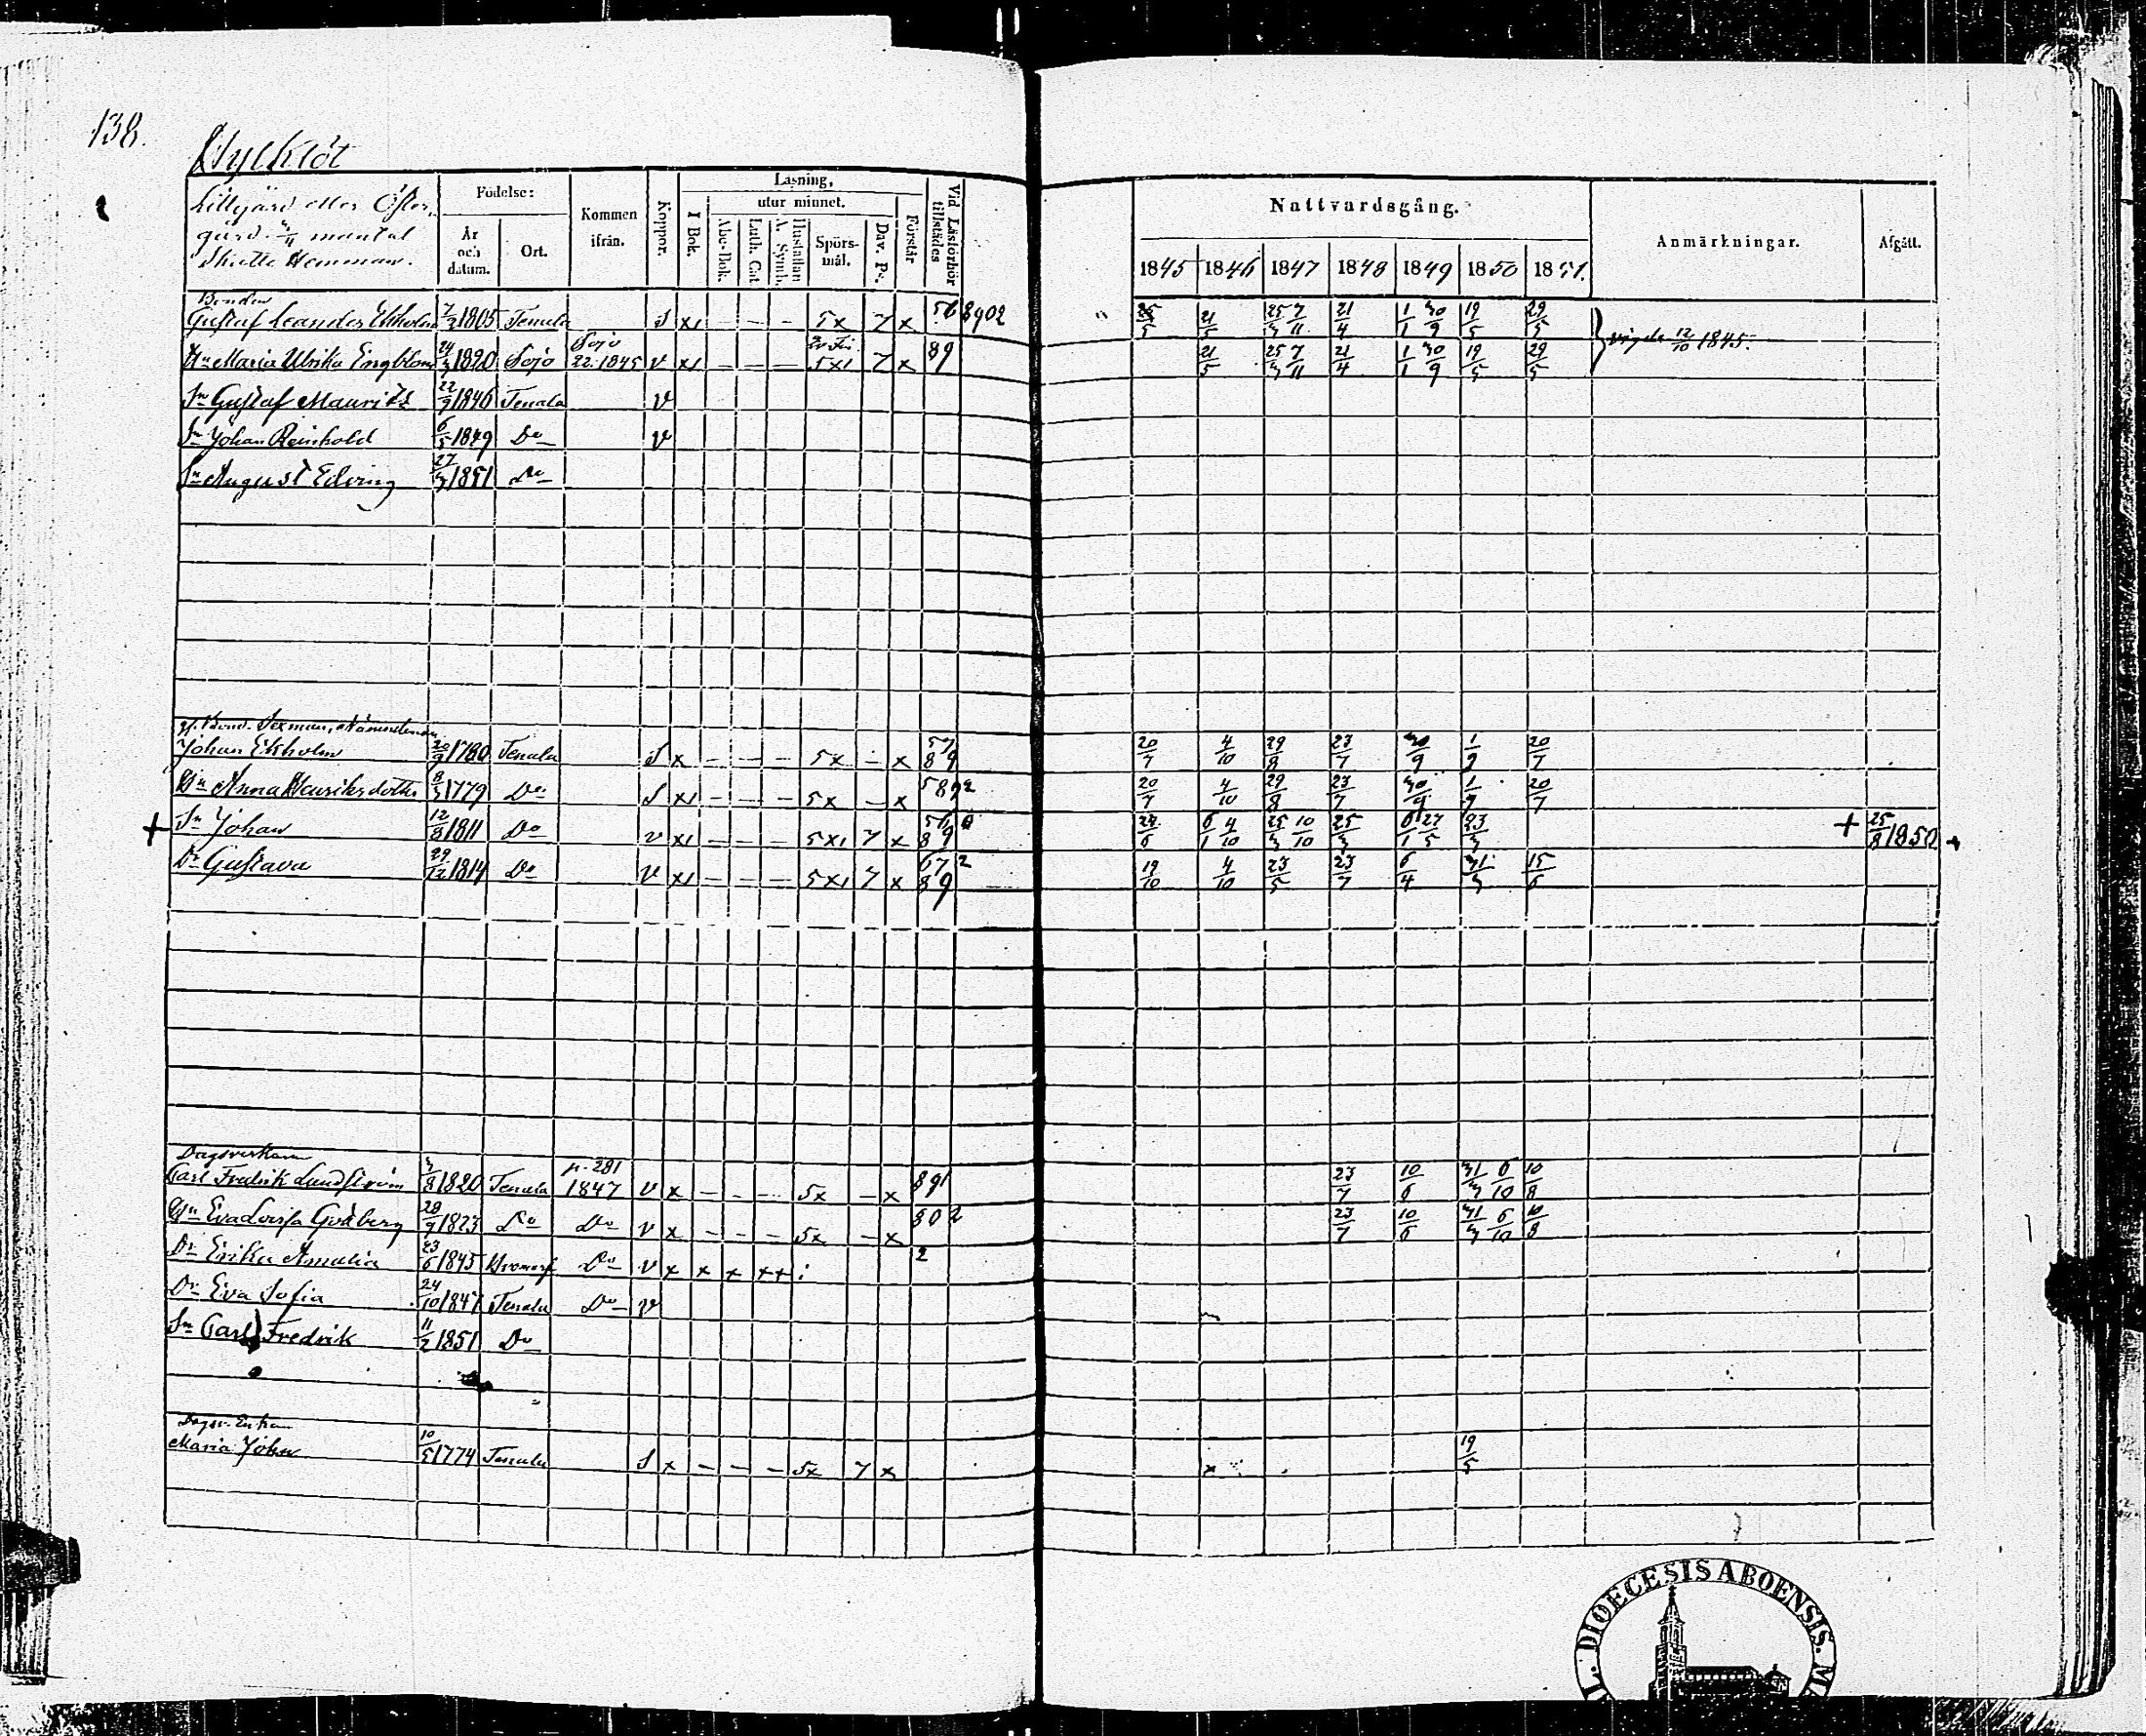 138.
Lillgård eller Öster-
gård. 3/4 mantal
Skatte Hemman.
Födelse:
År och datum.
Ort.
Kommen ifrån.
Koppor.
Läsning,
I Bok.
utur minnet.
Abc-Bok.
Luth. Cat.
Hustaflan A. Symb.
Spörs-mål.
Dav. Ps.
Förstår
Vid Läsförhör tillstädes
Nattvardsgång.
1845 1846 1847 1848 1849 1850 1851.
Anmärkningar.
Afgått.
Bonden
Gustaf Leander Ekholm 1805 Tenala S x1 - - - 5x 7 x 56 8902 25/5 21/5 25/3 7/11 21/4 1/1 30/9 19/5 29/5
Hu Maria Ulrika Engblom 24/3 1820 Sojo Sojo 22. 1845 v x1 - - - 5x1 7 x 89 21/5 25/3 7/11 21/4 1/1 30/9 19/5 29/5 vigde 12/10 1845.
Sn Gustaf Maurits 22/9 1846 Tenala v
Sn Johan Reinhold 6/5 1849 Do v
Sn August Edving 27/3 1851 Do
Johan Ekholm 20/9 1780 Tenala S x - - - 5x - x 57 89 20/7 4/10 29/8 23/7 30/9 1/9 20/7
Hu Anna Henriksdotter 8/3 1779 Do S x1 - - - 5x - x 5892 20/7 4/10 29/8 23/7 30/9 1/9 20/7
+ Sn Johan 12/8 1811 Do v x1 - - - 5x1 7 x 89 24/6 6/1 4/10 25/3 10/10 25/3 6/1 27/5 23/3 + 25/8 1850 +
Dr Gustava 29/12 1814 Do v x1 - - - 5x1 7 x 67 2 89 19/10 4/10 23/5 23/7 6/4 31/3 15/6
Dagsverkaren
Carl Fredrik Lundström 3/8 1820 Tenala p. 281 1847 v x - - - 5x - x 891 23/7 10/6 31/3 6/10 10/8
Hu Eva Lovisa Gråberg 28/9 1823 Do Do v x - - - 5x - x 802 23/7 10/6 31/3 6/10 10/8
Dr Erika Amalia 23/6 1845 Bromarf Do v x x x x+ 2
Dr Eva Sofia 24/10 1847 Tenala Do v
Sn Carl Fredrik 11/2 1851 Do
Dagsv. Enkan
Maria Johan 10/5 1774 Tenala S x - - - 5x 7 x 19/5
DIOECESIS ABOENSIS.